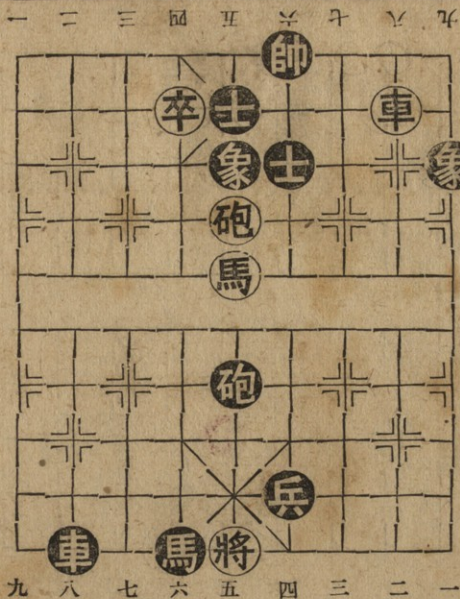 一 二 三 四 五 六 七 八 九
帥
卒 士 車
象 士 象
砲
馬
砲
兵
車 馬 將
九 八 七 六 五 四 三 二 一